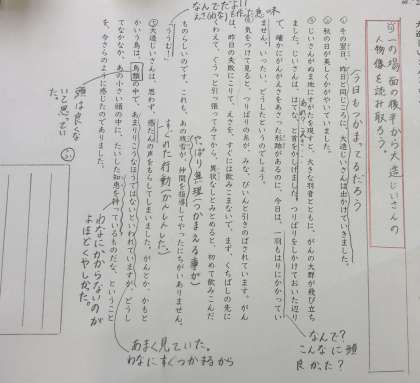 一の場面の後半から大造じいさんの
人物像を読み取ろう。
今日もつかまってるだろう
その翌日、昨日と同じころに、大造じいさんは出かけていきました。
秋の日が美しくかがやいていました。
じいさんがぬま地にすがたを現すと、大きな羽音とともに、がんの大群が飛び立ち
ました。じいさんは、「はてな。」と首をかしげました。つりばりをしかけておいた辺り
で、確かにがんがえをあさった形跡があるのに、今日は一羽もはりにかかってい
ません。いったい、どうしたというのでしょう。
気をつけて見ると、つりばりの糸が、みな、ぴいんと引きのばされています。がん
は、昨日の失敗にこりて、えさを、すぐには飲みこまないで、まず、くちばしの先に
くわえて、ぐうっと引っ張ってみてから、異状なしとみとめると、初めて飲みこんだ
ものらしいのです。これも、あの残雪が、仲間を指導してやったにちがいありません。
「ううむ！」
大造じいさんは、思わず、感たんの声をもらしてしまいました。がんとか、かもと
かいう鳥は、鳥類の中で、あまりりこうなほうではないといわれていますが、どうし
てなかなか、あの小さい頭の中に、たいした知恵を持っているものだな、ということ
を、今さらのように感じたのでありました。
なんでだよ！
なんで？
こんなに頭
良かった？
やっぱり無理(つかまえる事が)
すぐれた行動(かんしんした)
あまく見ていた、
わなにすぐつかまるから
頭は良くな
いと思ってい
た。
わなにかからないのが
よほどくやしかった。